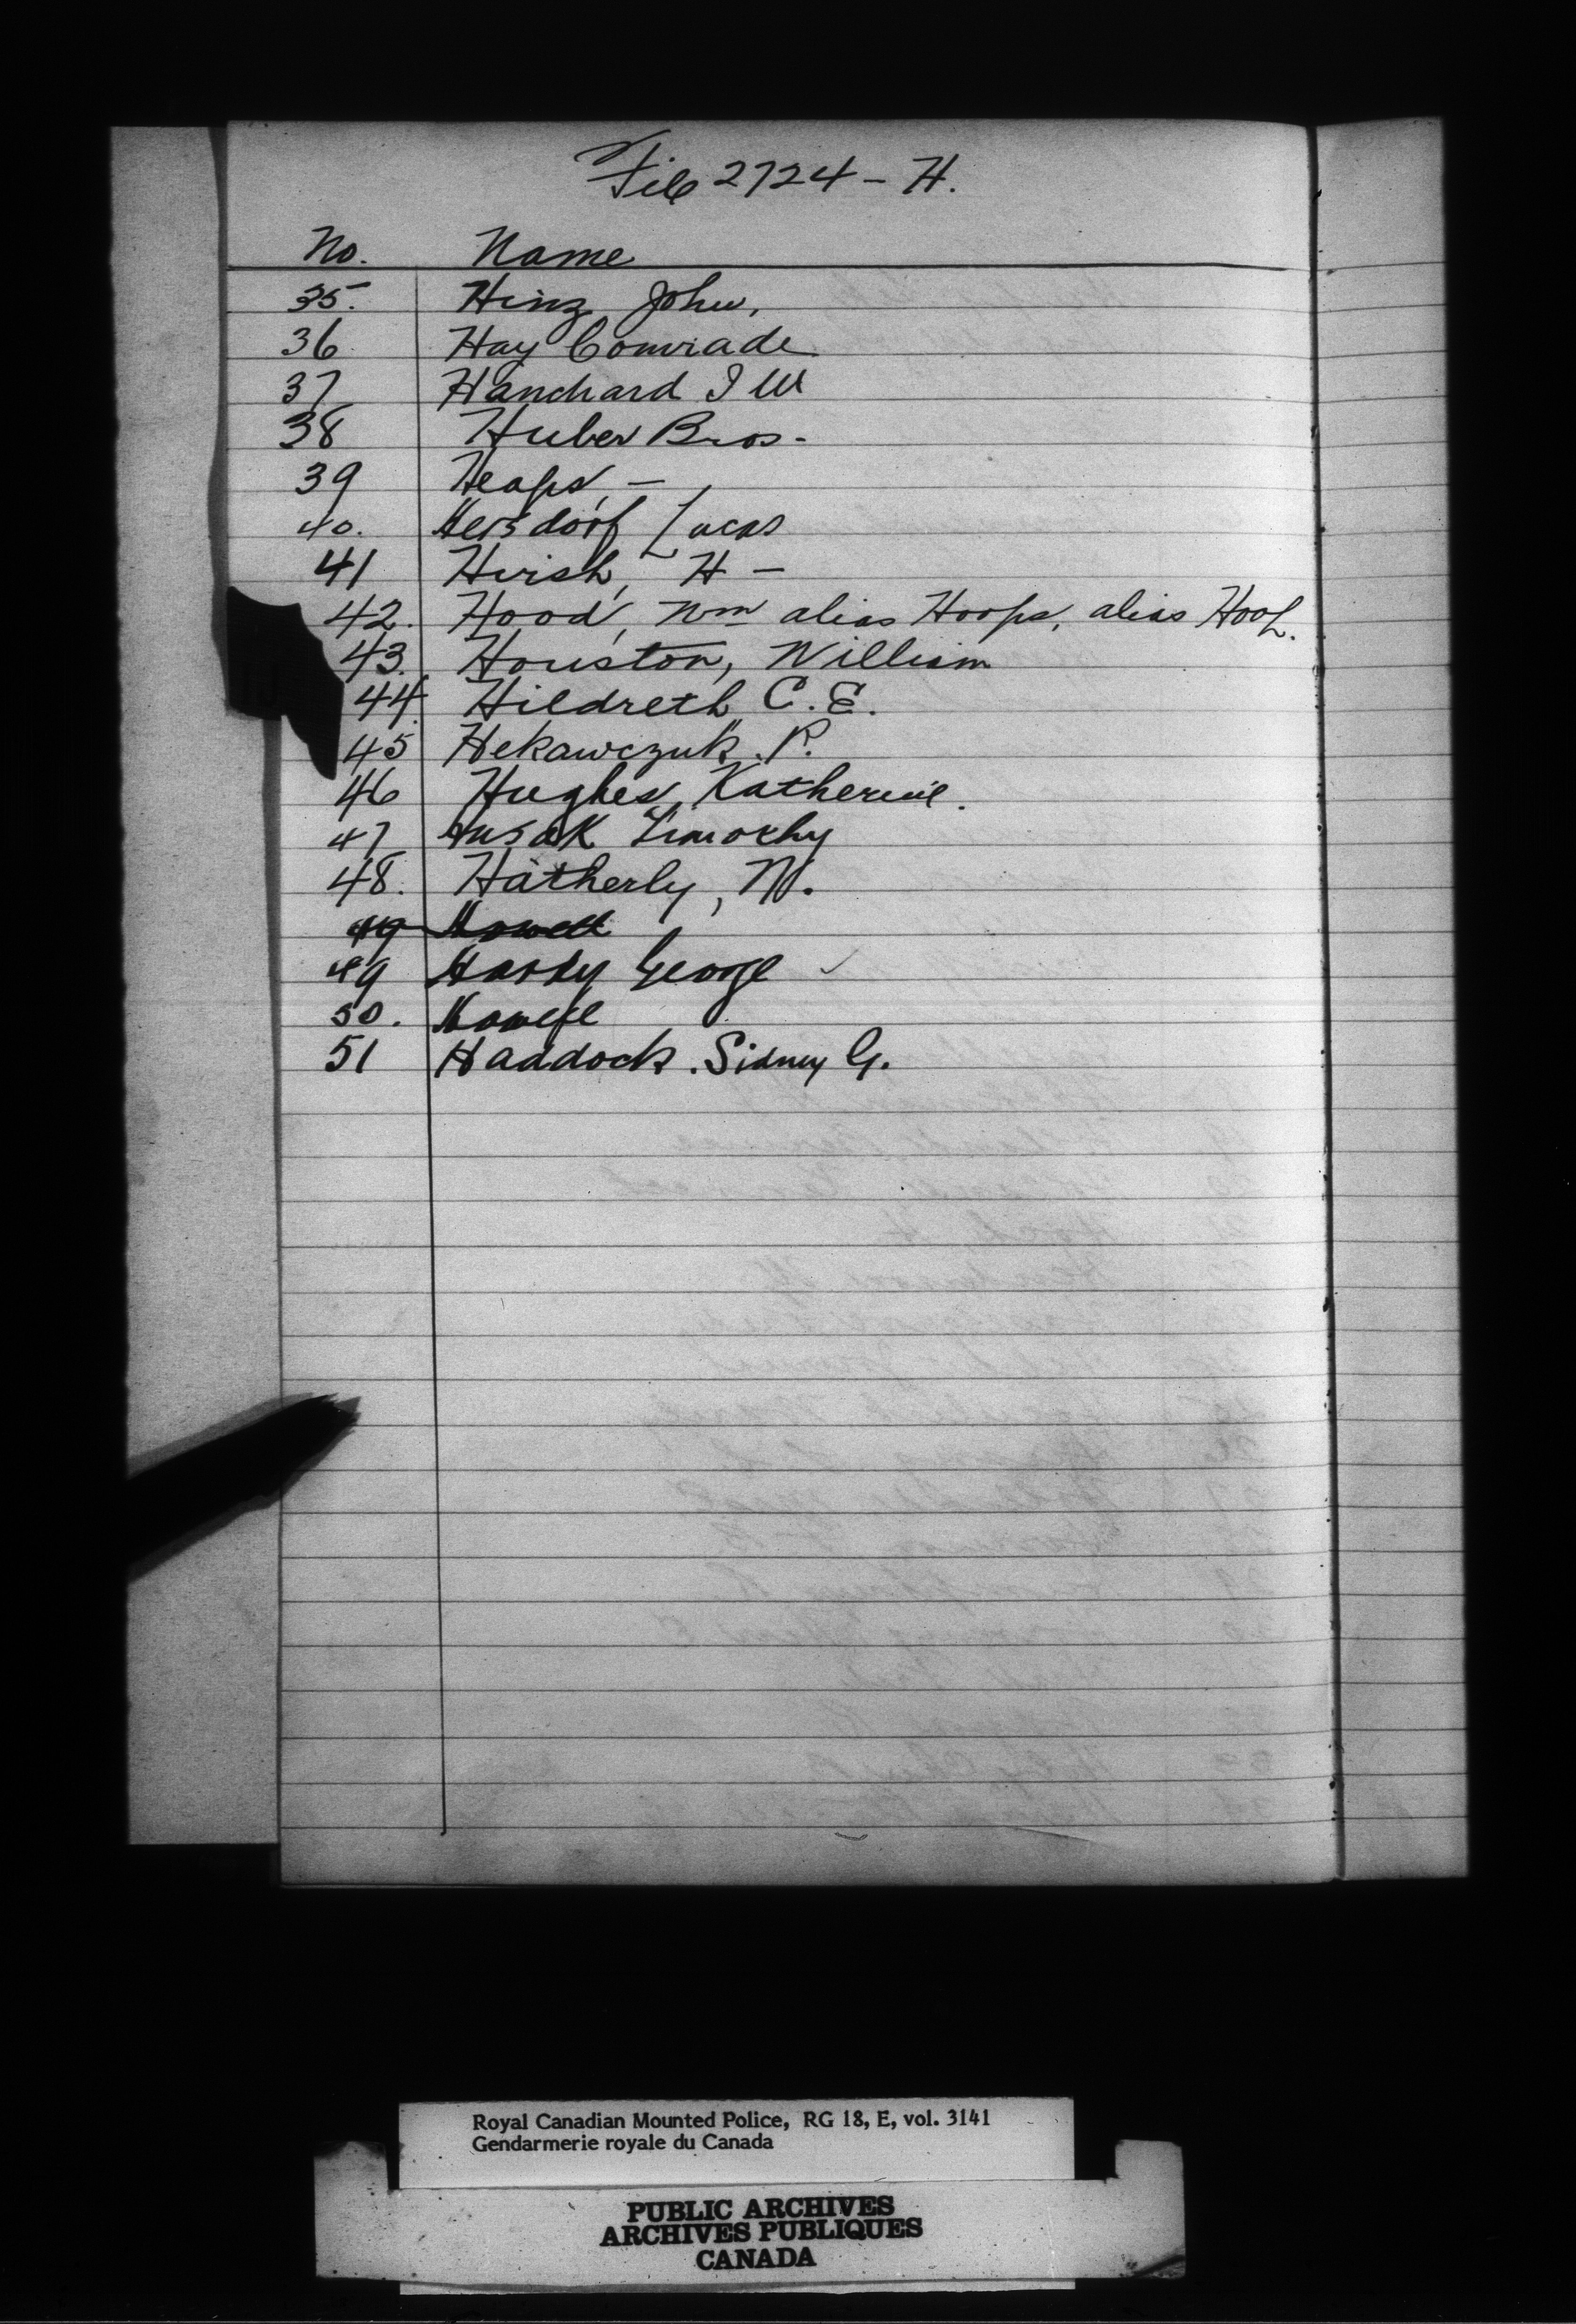 File 2724 - H.
No. Name
35. Hinz, John,
36 Hay Comrade
37 Hanchard J W
38 Huber Bros.
39 Heaps, -
40. Hersdorf, Lucas
41 Hirsh, H -
42. Hood, Wm alias Hoops, alias Hoof.
43. Houston, William
44. Hildreth C. E.
45 Hekawczuk. P.
46 Hughes, Katherine.
47 Husak Timothy
48. Hatherly, W.
49 Howell
49 Hardy George ✓
50. Howell
51 Haddock. Sidney G.
Royal Canadian Mounted Police, RG 18, E, vol. 3141
Gendarmerie royale du Canada
PUBLIC ARCHIVES
ARCHIVES PUBLIQUES
CANADA